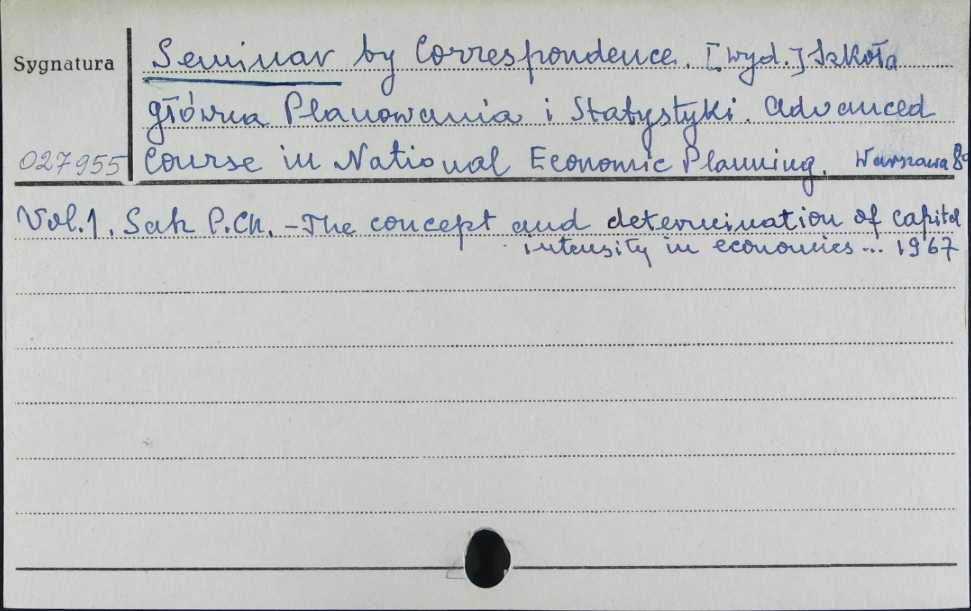 Sygnatura
Seminar by Correspondence. [wyd.] Szkoła
główna Planowania i Statystyki. Advanced
027955
Course in National Economic Planning. Warszawa 8°
Vol.1. Sah P.Ch. - The concept and determination of capital
intensity in economics ... 1967